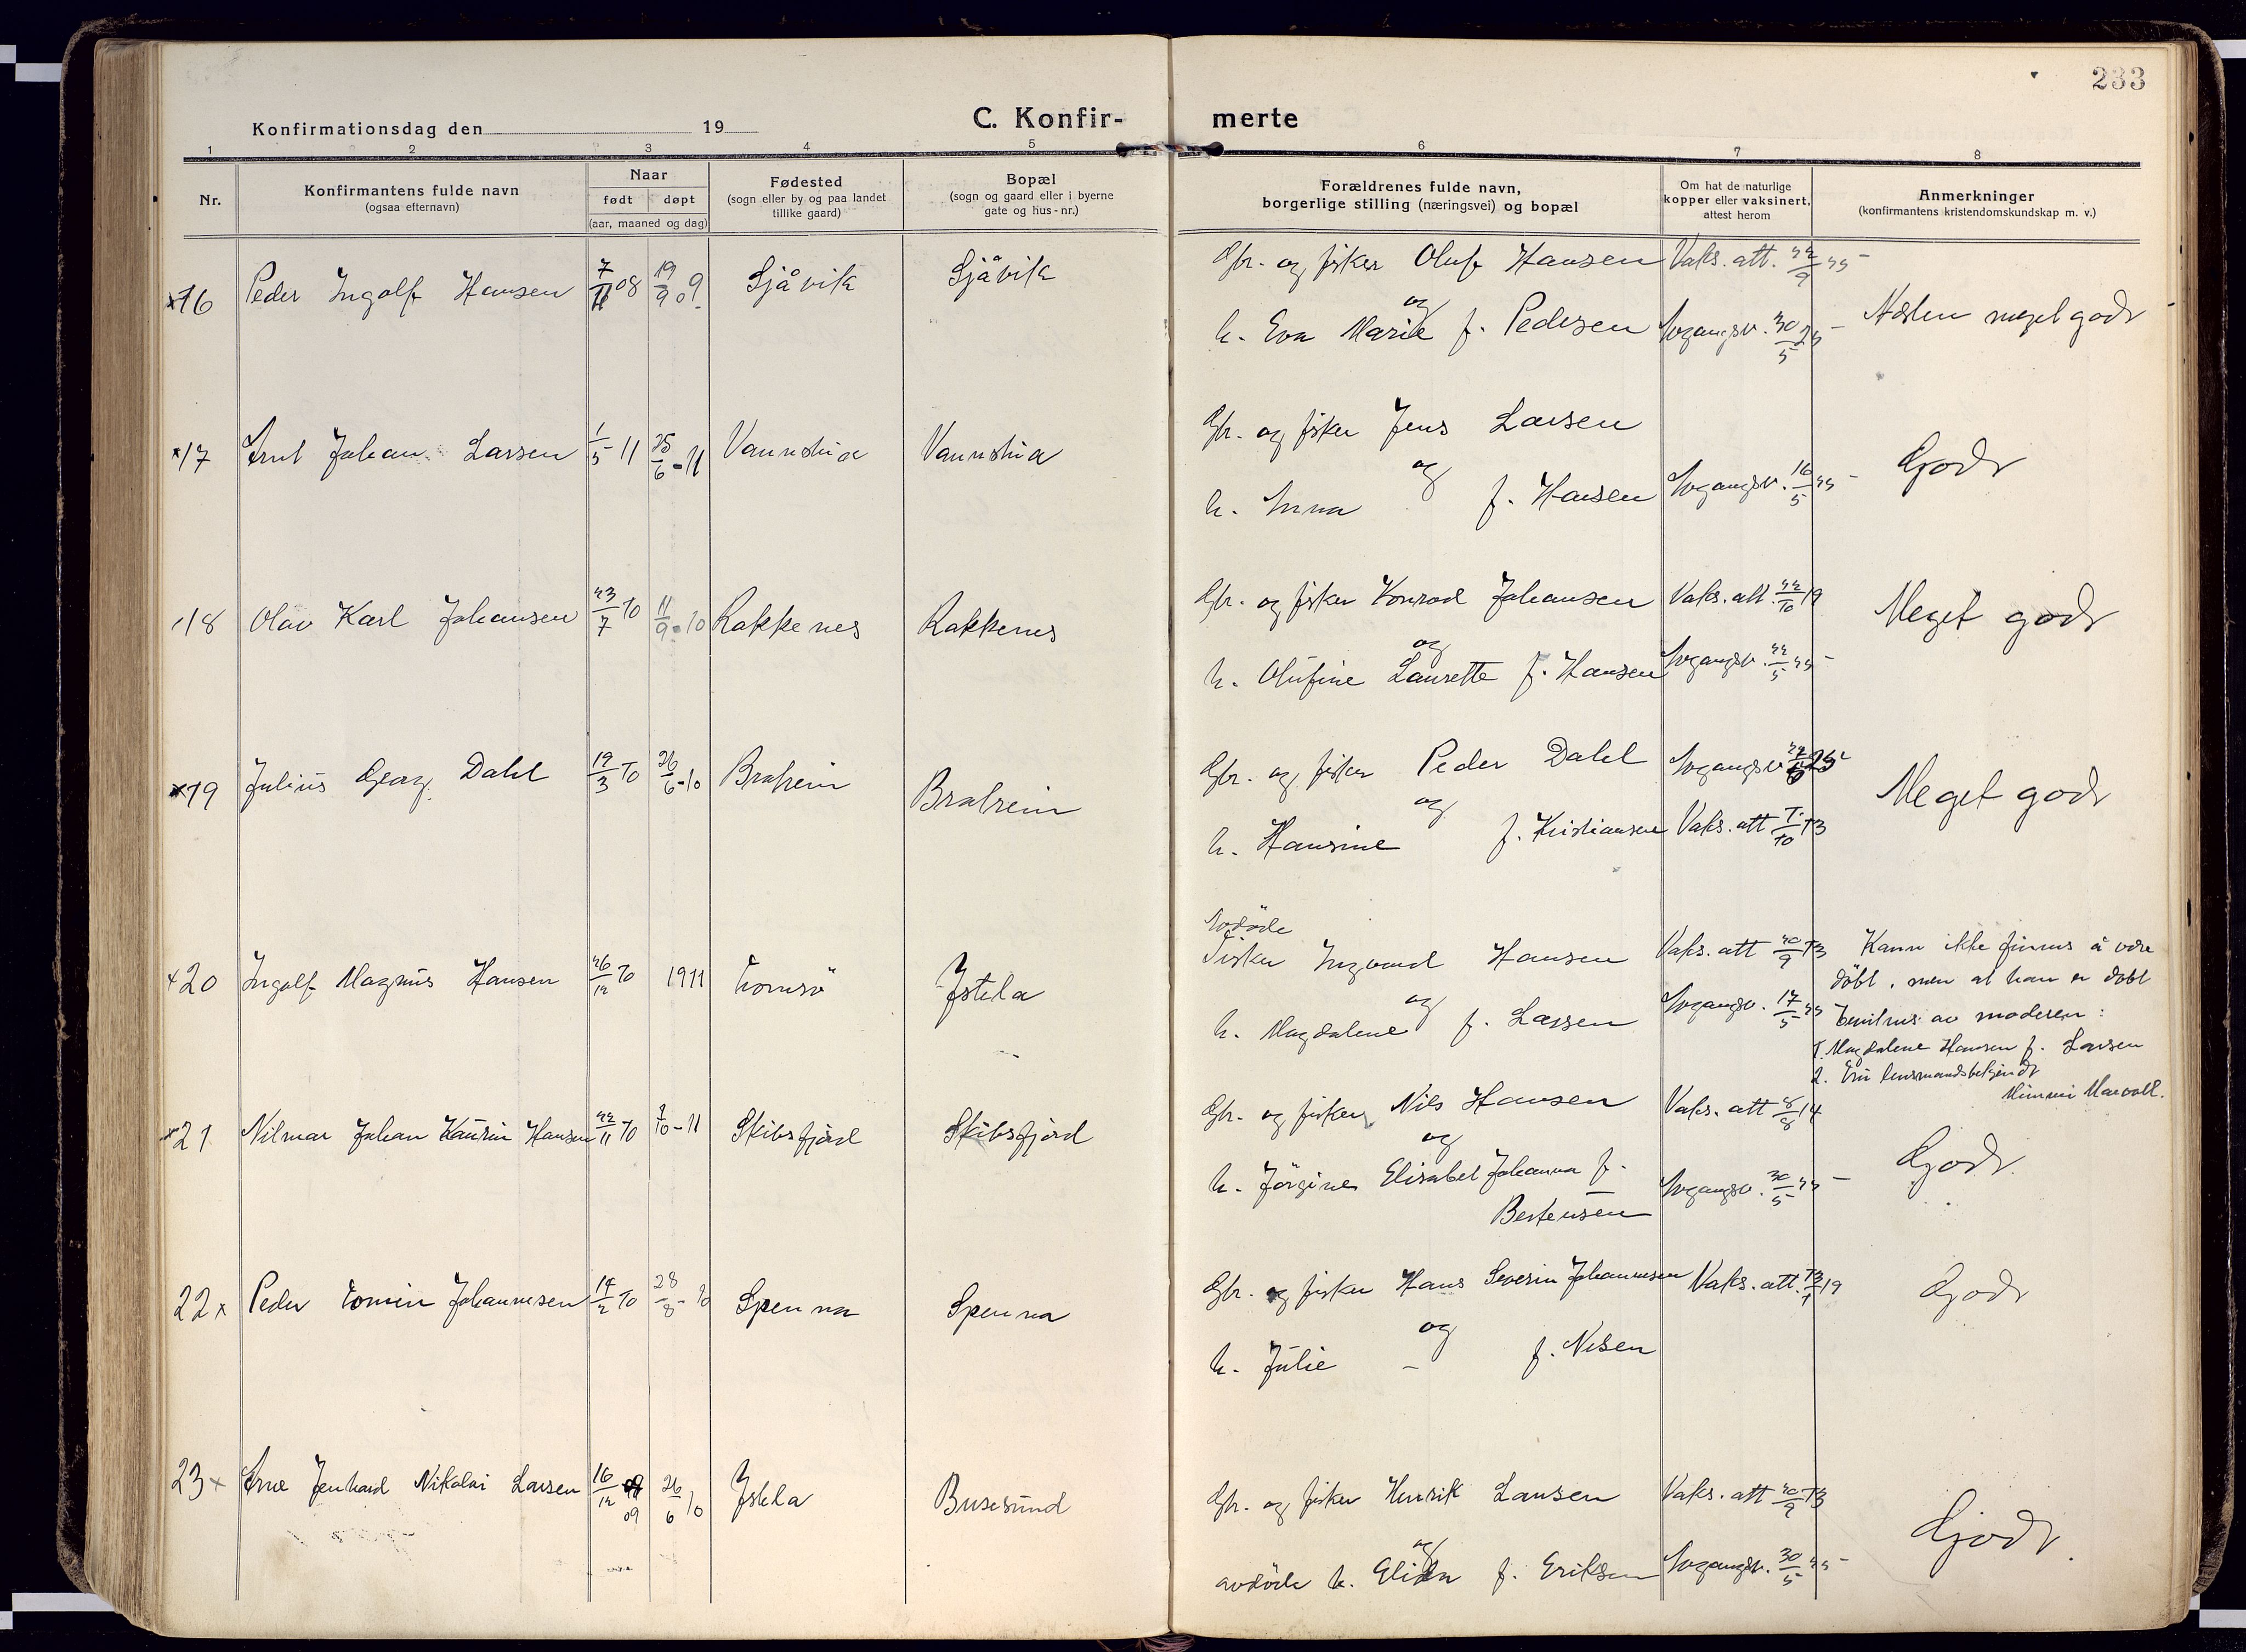 233
Konfirmationsdag den 19
C. Konfir-
merte
1 2 3 4 5 6 7 8
Nr.
Konfirmantens fulde navn
(ogsaa efternavn)
Naar
født døpt
(aar, maaned og dag)
Fødested
(sogn eller by og paa landet
tillike gaard)
Bopæl
(sogn og gaard eller i byerne
gate og hus-nr.)
Forældrenes fulde navn,
borgerlige stilling (næringsvei) og bopæl
Om hat de naturlige
kopper eller vaksinert,
attest herom
Anmerkninger
(konfirmantens kristendomskundskap m. v.)
x16 Peder Ingolf Hansen 7/11 08 19/9 09 Sjåvik Sjåvik
Gbr. og fisker Oluf Hansen Vaks. att. 22/9 25
og
h. Eva Marie f. Pedersen 30/5 25
Næsten meget godt
x17 Arnt Johan Larsen 1/5 11 25/6-11 Vannstua Vannstua
Gbr. og fisker Jens Larsen
og
h. Anna f. Hansen 16/5 25
Godt
18 Olav Karl Johansen 23/7 10 11/9-10 Rakkenes Rakkenes
Gbr. og fisker Konrad Johansen Vaks. att. 22/10 19
og
h. Olufine Laurette f. Hansen 22/5 25
Meget godt
x19 Julius Georg Dahl 19/3 10 26/6-10 Brahein Brahein
Gbr. og fisker Peder Dahl
og
h. Hansine f. Kristiansen Vaks. att 1/10 13
Meget godt
x20 Ingolf Magnus Hansen 26/12 10 1911 Tromsö Jstela
Avdöde
Fisker Ingvard Hansen Vaks. att 20/9 13
og
h. Magdalene f. Larsen 17/5 25
Kann ikke finnes å være
döbt, men at han er döbt
bevitnes av moderen:
1. Magdalene Hansen f. Larsen
2. Eru lensmandsbetjendt
x21 Hilmar Johan Kaurin Hansen 22/11 10 1/10-11 Skibsfjord Skibsfjord
Gbr. og fisker Nils Hansen Vaks. att 8/8 14
og
h. Jörgine Elisabet Johanna f.
Bertensen 30/5 25
Godt
22x Peder Edmin Johannesen 14/2 10 28/8-10 Spenna Spenna
Gbr. og fisker Hans Severin Johannesen Vaks. att. 19
og
h. Julie f. Nilsen
Godt
23x Arne Jenhard Nikolai Larsen 16/12 09 26/6 10 Jstela Burøsund
Gbr. og fisker Henrik Larsen Vaks. att 20/9 13
og
avdöde h. Elida f. Eriksen 30/5 25
Godt